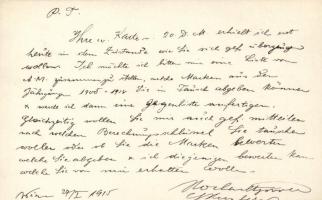 P. T.
Ihre w. Karte - 20. D. M. erhielt ich erst
heute in dem Zustande wie Sie sich gefl. überzeugen
wollen. Ich möchte ich bitten mir eine Liste von
A. M. zusammenzustellen, welche Marken aus den
Jahrgängen 1905-1912 Sie in Tausch abgeben können
& werde ich dann eine Gegenliste anfertigen.
Gleichzeitig wollen Sie mir auch gefl. mitteilen
nach welchem Berechnungsschlüssel Sie tauschen
wollen oder ob Sie die Marken bewerten
welche Sie abgeben & ich diejenigen bewerten kann
welche Sie von mir erhalten wollen.
Hochachtungsvoll
Wien 29/I 1915